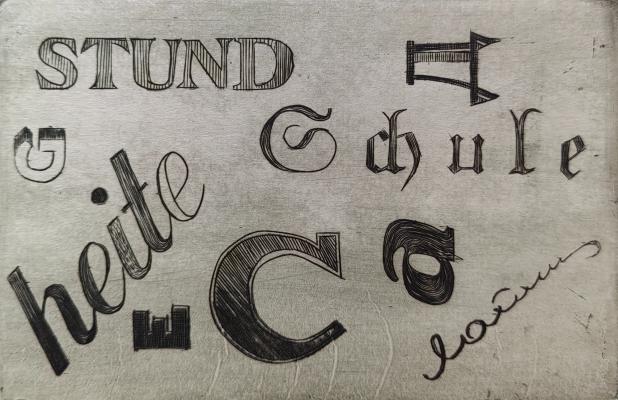 STUND
G
Schule
heite
C
a
E